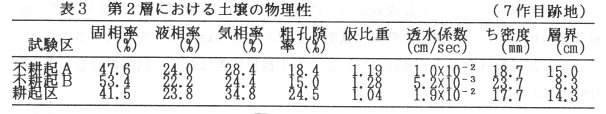 表3 第2層における土壌の物理性 (7作目跡地)
試験区 固相率(%) 液相率(%) 気相率(%) 粗孔隙率(%) 仮比重 透水係数(cm/sec) ち密度(mm) 層界(cm)
不耕起A 47.6 24.0 28.4 18.4 1.19 1.0×10⁻² 18.7 15.0
不耕起B 53.4 22.2 24.4 15.0 1.28 5.2×10⁻³ 23.7 8.3
耕起区 41.5 23.8 34.8 24.5 1.04 1.9×10⁻² 17.7 14.3